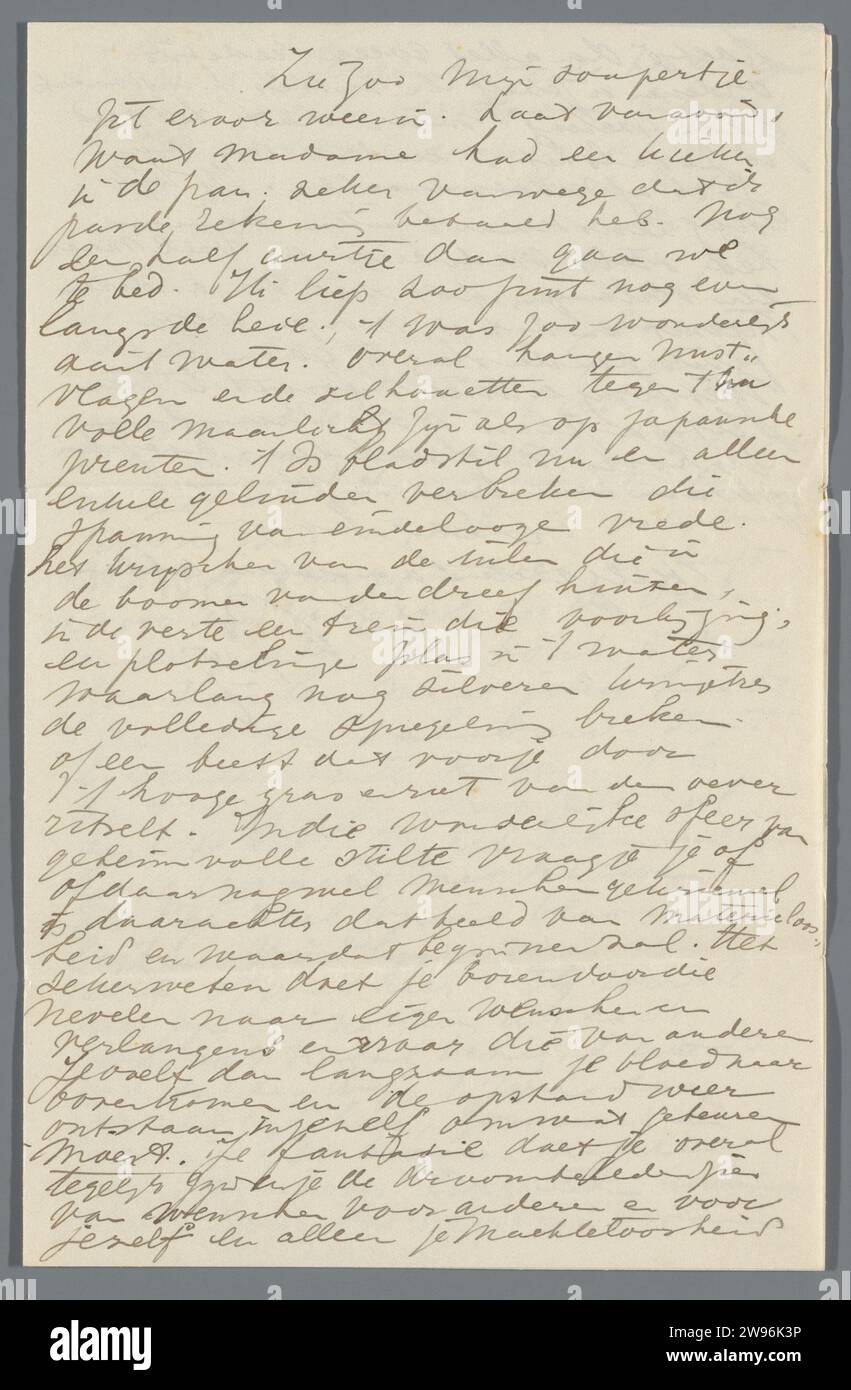 Zie zoo mijn soupertje
zit ervoor weer in. Laat vanavond,
want madame had een kieken
in de pan. zeker vanwege dat ik
rekening betaald heb. Nog
een half uurtje dan gaan we
te bed. Ik liep zoo juist nog even
langs de heie., 't was zoo wonderlijk
aan 't water. overal hangen mist-
vlagen en de silhouetten tegen 't
volle maanlicht zijn als op japansche
prenten. 't Is bladstil nu en alleen
enkele geluiden verbreken die
spanning van eindelooze vrede.
het krijschen van de uilen die in
de boomen van den dreef huizen,
in de verte een trein die voorbijging,
een plotselinge plas in 't water
waarlang nog zilveren kringtjes
de volledige spiegeling breken.
of een beest dat voor je door
't hooge gras en riet van den oever
ritselt. In die wonderlijke sfeer van
geheimvolle stilte vraag je je af
of daar nog wel menschen gekrioemel
is daarachter dat beeld van materieloos-
heid en waar dat beginnen zal. Het
zeker weten doet je boven door die
nevelen naar eigen wenschen en
verlangens en naar die van anderen
Je voelt dan langzaam je bloed naar
boven komen en de opstand weer
ontstaan in jezelf om wat gebeuren
moest. Je fantasie doet je overal
tegelijk zijn en je de droombeelden zien
van wenschen voor anderen en voor
jezelf en alleen je machteloosheid
alamy
Image ID: 2W96K3P
www.alamy.com